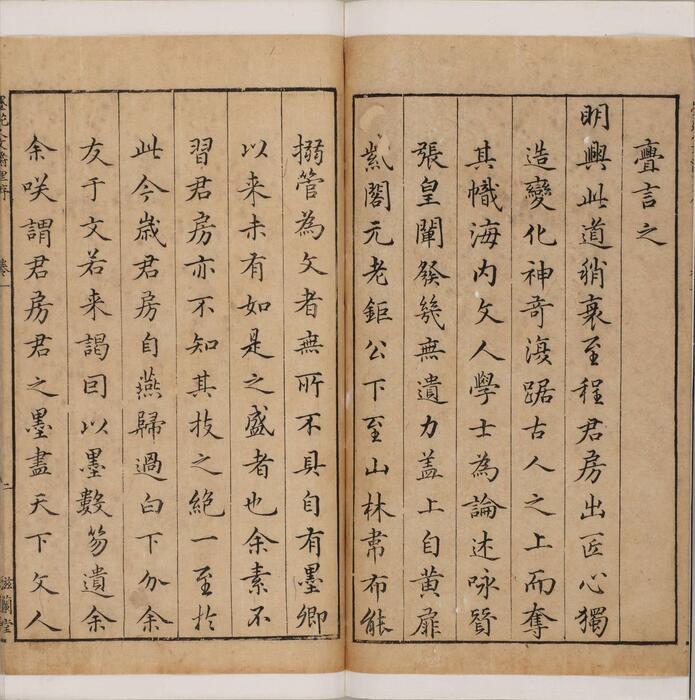 亹言之
明興此道稍衰至程君房出匠心獨
造變化神奇復踞古人之上而奪
其幟海内文人學士為論述咏贊
張皇闡發幾無遺力盖上自黄扉
紫閣元老鉅公下至山林韋布能
搦管為文者無所不具自有墨卿
以来未有如是之盛者也余素不
習君房亦不知其技之絕一至於
此今歲君房自燕歸過白下介余
友于文若来謁囙以墨數笏遺余
余咲謂君房君之墨盡天下文人
墨苑人文爵里序 卷一 二 滋蘭堂